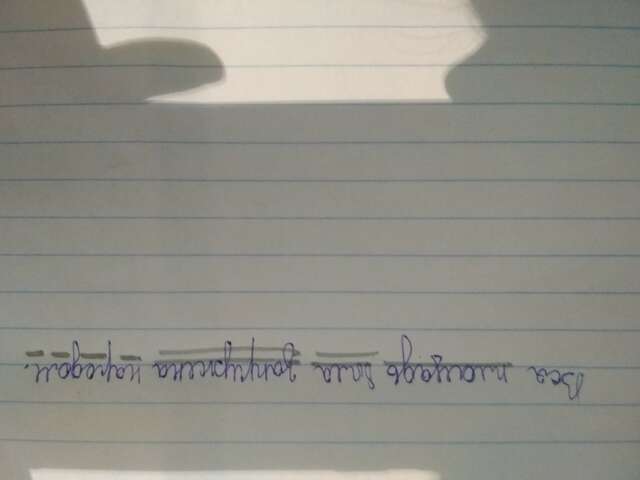 Вся площадь была запружена народом.